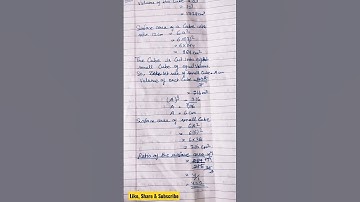 Volume of the Cube = a³
= 12³
= 1728 cm³
Surface area of a Cube with
side 12 cm = 6a²
= 6(12)²
= 6×144
= 864 cm²
The Cube is Cut into eight
small Cube of equal Volume
So, let side of small Cube A cm
Volume of each Cube =
= 216 cm³
(A)³ = 216
A =
A = 6 cm
Surface area of small Cube
= 6A²
= 6(6)²
= 6×36
= 216 cm²
Ratio of the surface area of
=
=
Like, Share & Subscribe